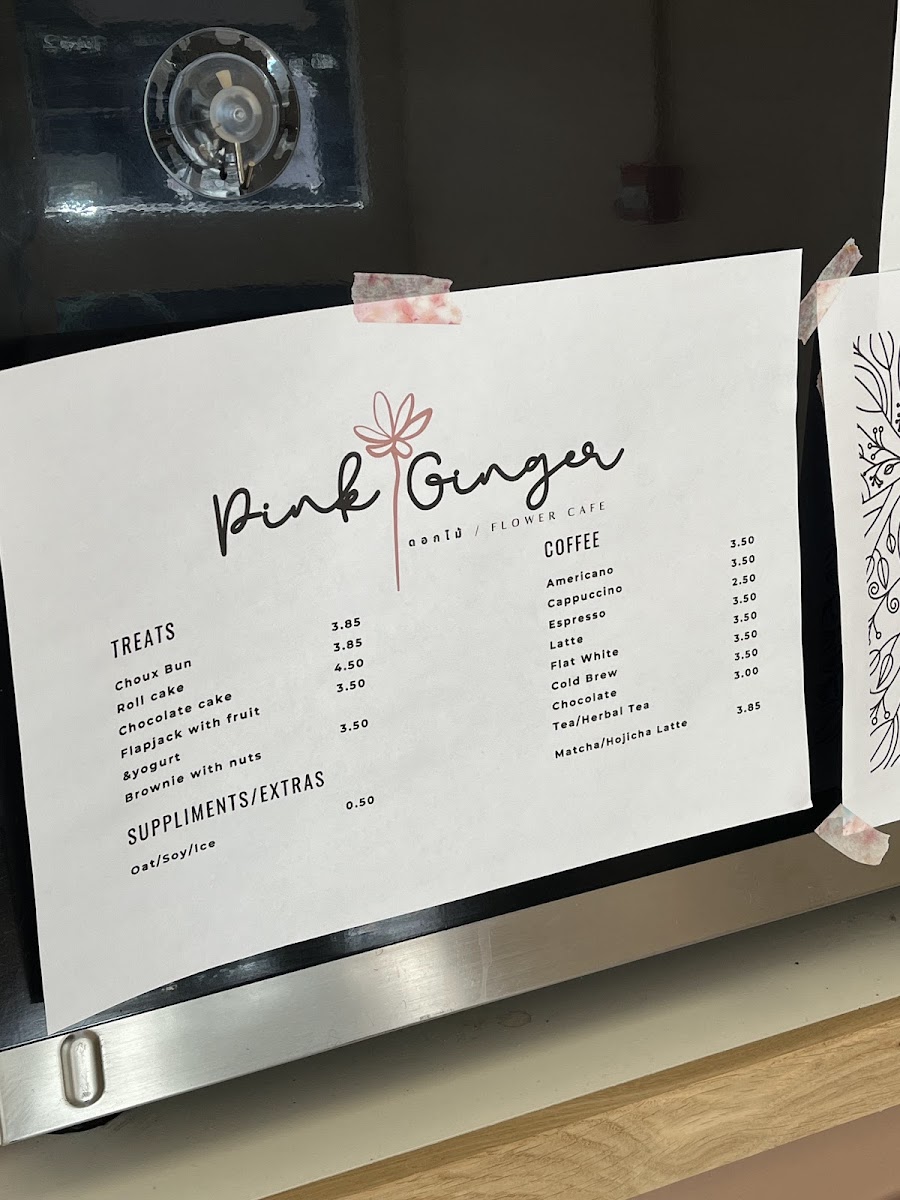 Pink Ginger
ดอกไม้ / FLOWER CAFE
TREATS
Choux Bun 3.85
Roll cake 3.85
Chocolate cake 4.50
Flapjack with fruit 3.50
&yogurt
Brownie with nuts 3.50
SUPPLIMENTS/EXTRAS
Oat/Soy/Ice 0.50
COFFEE
Americano 3.50
Cappuccino 3.50
Espresso 2.50
Latte 3.50
Flat White 3.50
Cold Brew 3.50
Chocolate 3.50
Tea/Herbal Tea 3.00
Matcha/Hojicha Latte 3.85